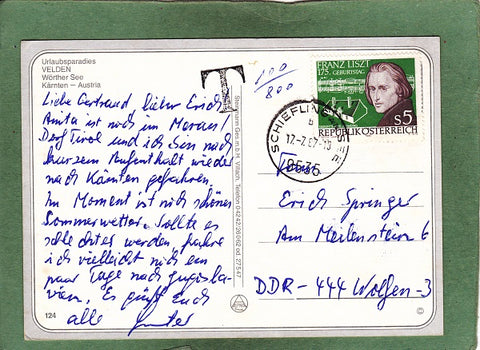 Urlaubsparadies
VELDEN
Wörther See
Kärnten – Austria
Liebe Gertraud, lieber Erich
Anita ist noch in Meran/
Dorf Tirol und ich bin nach
kurzem Aufenthalt wieder
nach Kärnten gefahren.
Im Moment ist noch schönes
Sommerwetter. Sollte es
schlechter werden, fahre
ich vielleicht noch ein
paar Tage nach Jugosla-
wien. Es grüßt Euch
alle Günter
124
T
100/800
FRANZ LISZT
175. GEBURTSTAG
S5
REPUBLIK ÖSTERREICH
SCHIEFLING
SEE
b
17.-7.87-
9535
Erich Springer
Am Meilenstein 6
DDR-444 Wolfen-3
©